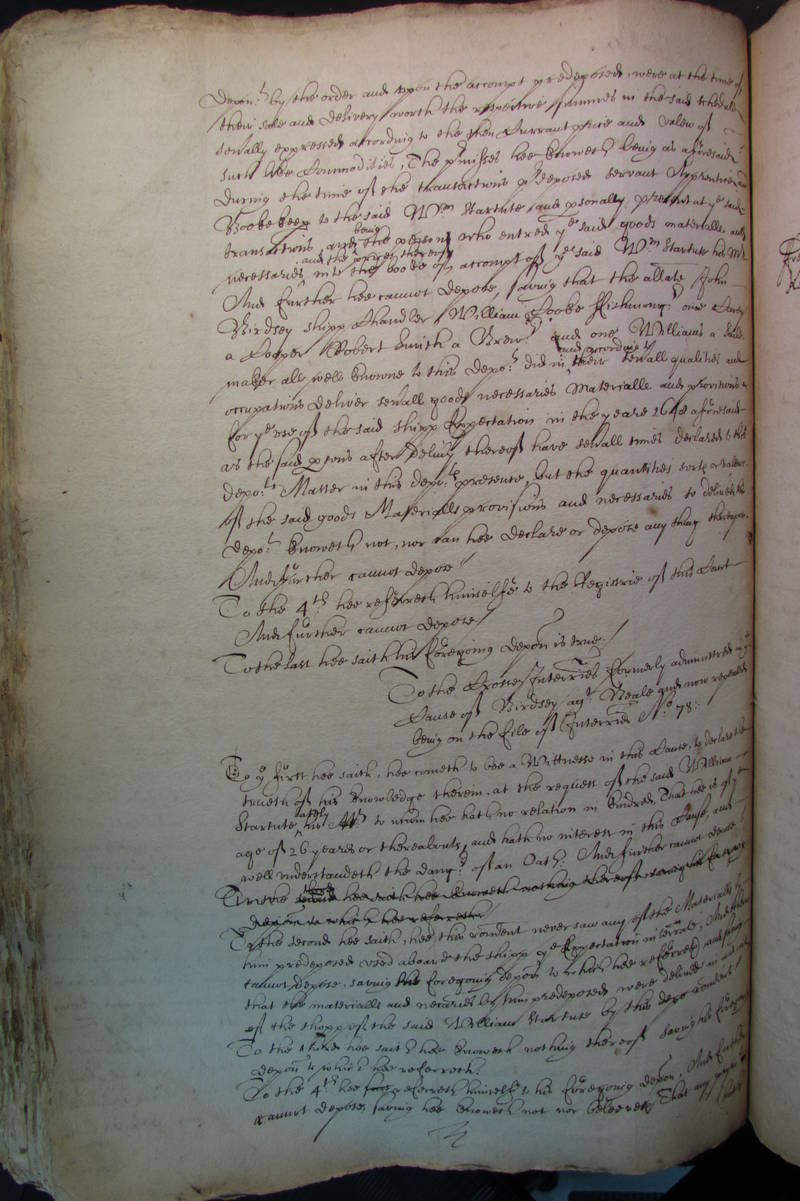 depon:t by the order and upon the accompt predeposed, were at the time of
their sale and delivery worth the respective summes in the said schedule
sevally expressed according to the then Currant price and valew of
such like Commodities, The pmisses hee knoweth being as aforesaid
during the time of the transactions pdeposed servant Apprentice and
Bookekeep to the said Wm Startute and psonally present at ye said
transactions, and being the person who entred ye said goods materialls and
necessaries and the prices thereof into the booke of accompt of ye said Wm Startute his Mr
And further hee cannot depose, saving that the allate John
Birdsey shipp Chandler William Cooke Fishmong:r one
a Cooper Robert Smith a Brew:r and one Williams a
maker all well knowne to this depo:t did in and according to their sevall qualities and
occupations deliver sevall goods necessaries Materialls and provisions
for ye use of the said shipp Expectation in the yeare 1648 aforesaid
as the said psons after delivy thereof have sevall times declared to this
depo:ts Master in this depo:ts presence, but the quantities sorts or valew
of the said goods Materialls provisions and necessaries so delived this
depo:t knoweth not, nor can hee declare or depose any thing thereupon
And further cannot depose
To the 4th hee referreth himselfe to the Registrie of this Court
And further cannot depose /
To the last hee saith his foregoing depon is true /
To the Crosse Interries formerly administred in ye
Cause of Birdsey agt Beale and now repeated
being on the file of Interries No 78:
To ye first hee saith, hee cometh to bee a Wittnesse in this Cause, to declare the
trueth of his knowledge therein, at the request of the said William
Startute his Mr to whom hee hath no relation in kindred, That hee is of ye
age of 26 yeares or thereabouts, and hath no interest in this Cause, and
well understandeth the dang:r of an Oath: And further cannot depose
To the second hee saith, hee this rondent never saw any of the Materialls by
him predeposed used aboard the shipp ye Expectation interrate, And further
cannot depose, saving his foregoing depon to which hee referreth and saving
that the materialls and necaries by him predeposed were delived in and out
of the shopp of the said William Startute by this depo rondent
To the third hee saith hee knoweth nothing thereof saving his foregoing
depon to which hee referreth.
To the 4th hee referreth himselfe to his foregoing depon, And further
cannot depose, saving hee knoweth not nor beleeveth That any